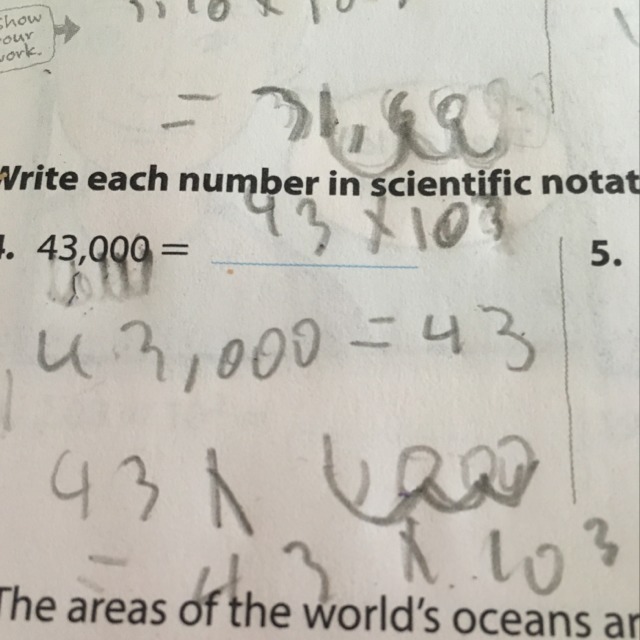 show
our
work.
= 31,
Write each number in scientific notat
43 x 10³
4. 43,000 =
5.
43,000 = 43
43 x 1,000
= 43 x 10³
The areas of the world's oceans ar